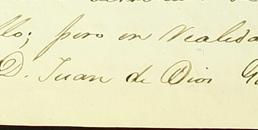 llo; pero en realida
D. Juan de Dios G